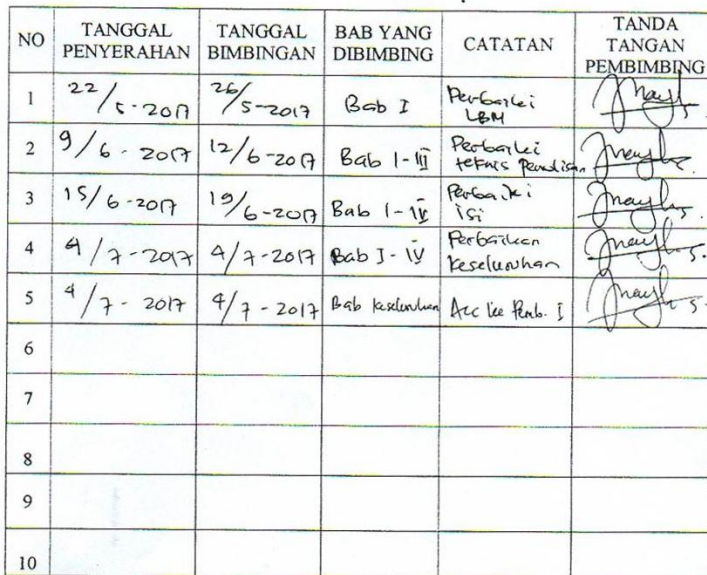 NO TANGGAL PENYERAHAN TANGGAL BIMBINGAN BAB YANG DIBIMBING CATATAN TANDA TANGAN PEMBIMBING
1 22/5-2017 26/5-2017 Bab I Perbaiki LBM
2 9/6-2017 12/6-2017 Bab I-III Perbaiki teknis penulisan
3 15/6-2017 19/6-2017 Bab I-IV Perbaiki isi
4 4/7-2017 4/7-2017 Bab I-IV Perbaikan Keseluruhan
5 4/7-2017 4/7-2017 Bab keseluruhan Acc ke Pemb. I
6
7
8
9
10